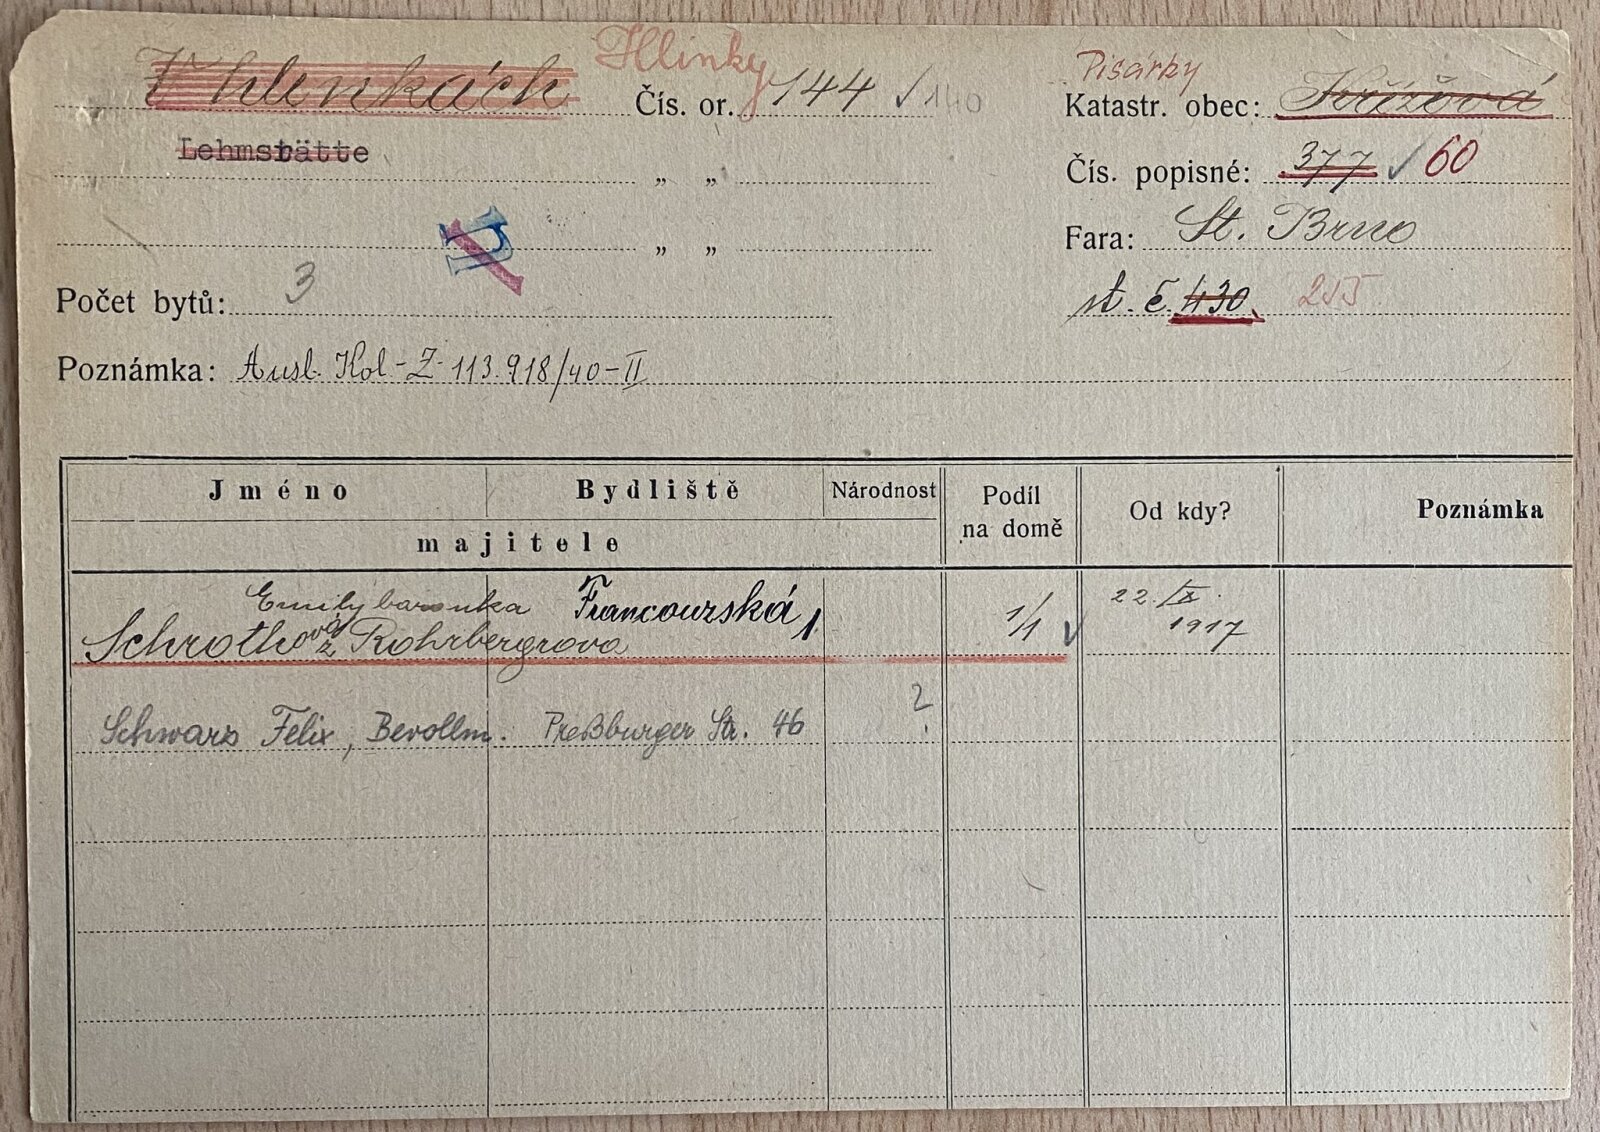 Hlinky
V hlinkách Čís. or. 144 140
Pisárky
Katastr. obec: Křížová
Lehmstätte
„ „
Čís. popisné: 377 60
„ „
Fara: St. Brno
Počet bytů: 3
st. č. 430 215
Poznámka: Ausl. Kol-Z-113.918/40-II
Jméno Bydliště Národnost Podíl na domě Od kdy? Poznámka
majitele
Emily baronka Francouzská 1/1 22. IX.
Schrothová z Rohrbergrova 1917
Schwarz Felix, Bevollm. Preßburger Str. 46 ?